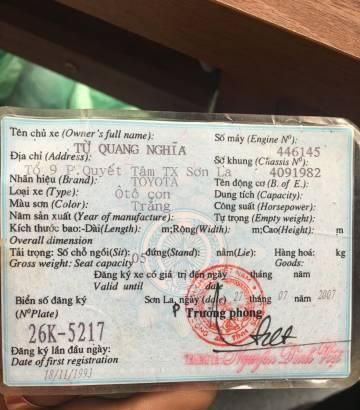 Tên chủ xe (Owner's full name): Số máy (Engine Nº): 446145
TỪ QUANG NGHĨA
Địa chỉ (Address): Số khung (Chassis Nº) 4091982
Tổ 9 P.Quyết Tâm TX Sơn La
Nhãn hiệu (Brand): TOYOTA Tên động cơ (B. of E.):
Loại xe (Type): Ôtô con Dung tích (Capacity):
Màu sơn (Color): Trắng Công suất (Horsepower):
Năm sản xuất (Year of manufacture): Tự trọng (Empty weight):
Kích thước bao:-Dài(Length): m;Rộng(Width): m;Cao(Height): m
Overall dimension
Tải trọng: Số chỗ ngồi(Sit): 05 đứng(Stand): nằm(Lie): Hàng hoá: kg
Gross weight: Seat capacity Goods:
Đăng ký xe có giá trị đến ngày tháng năm
Valid until date
Biển số đăng ký Sơn La, ngày (date) 27 tháng 07 năm 2007
(NºPlate) P Trưởng phòng
26K-5217
Đăng ký lần đầu ngày:
Date of first registration
18/11/1993